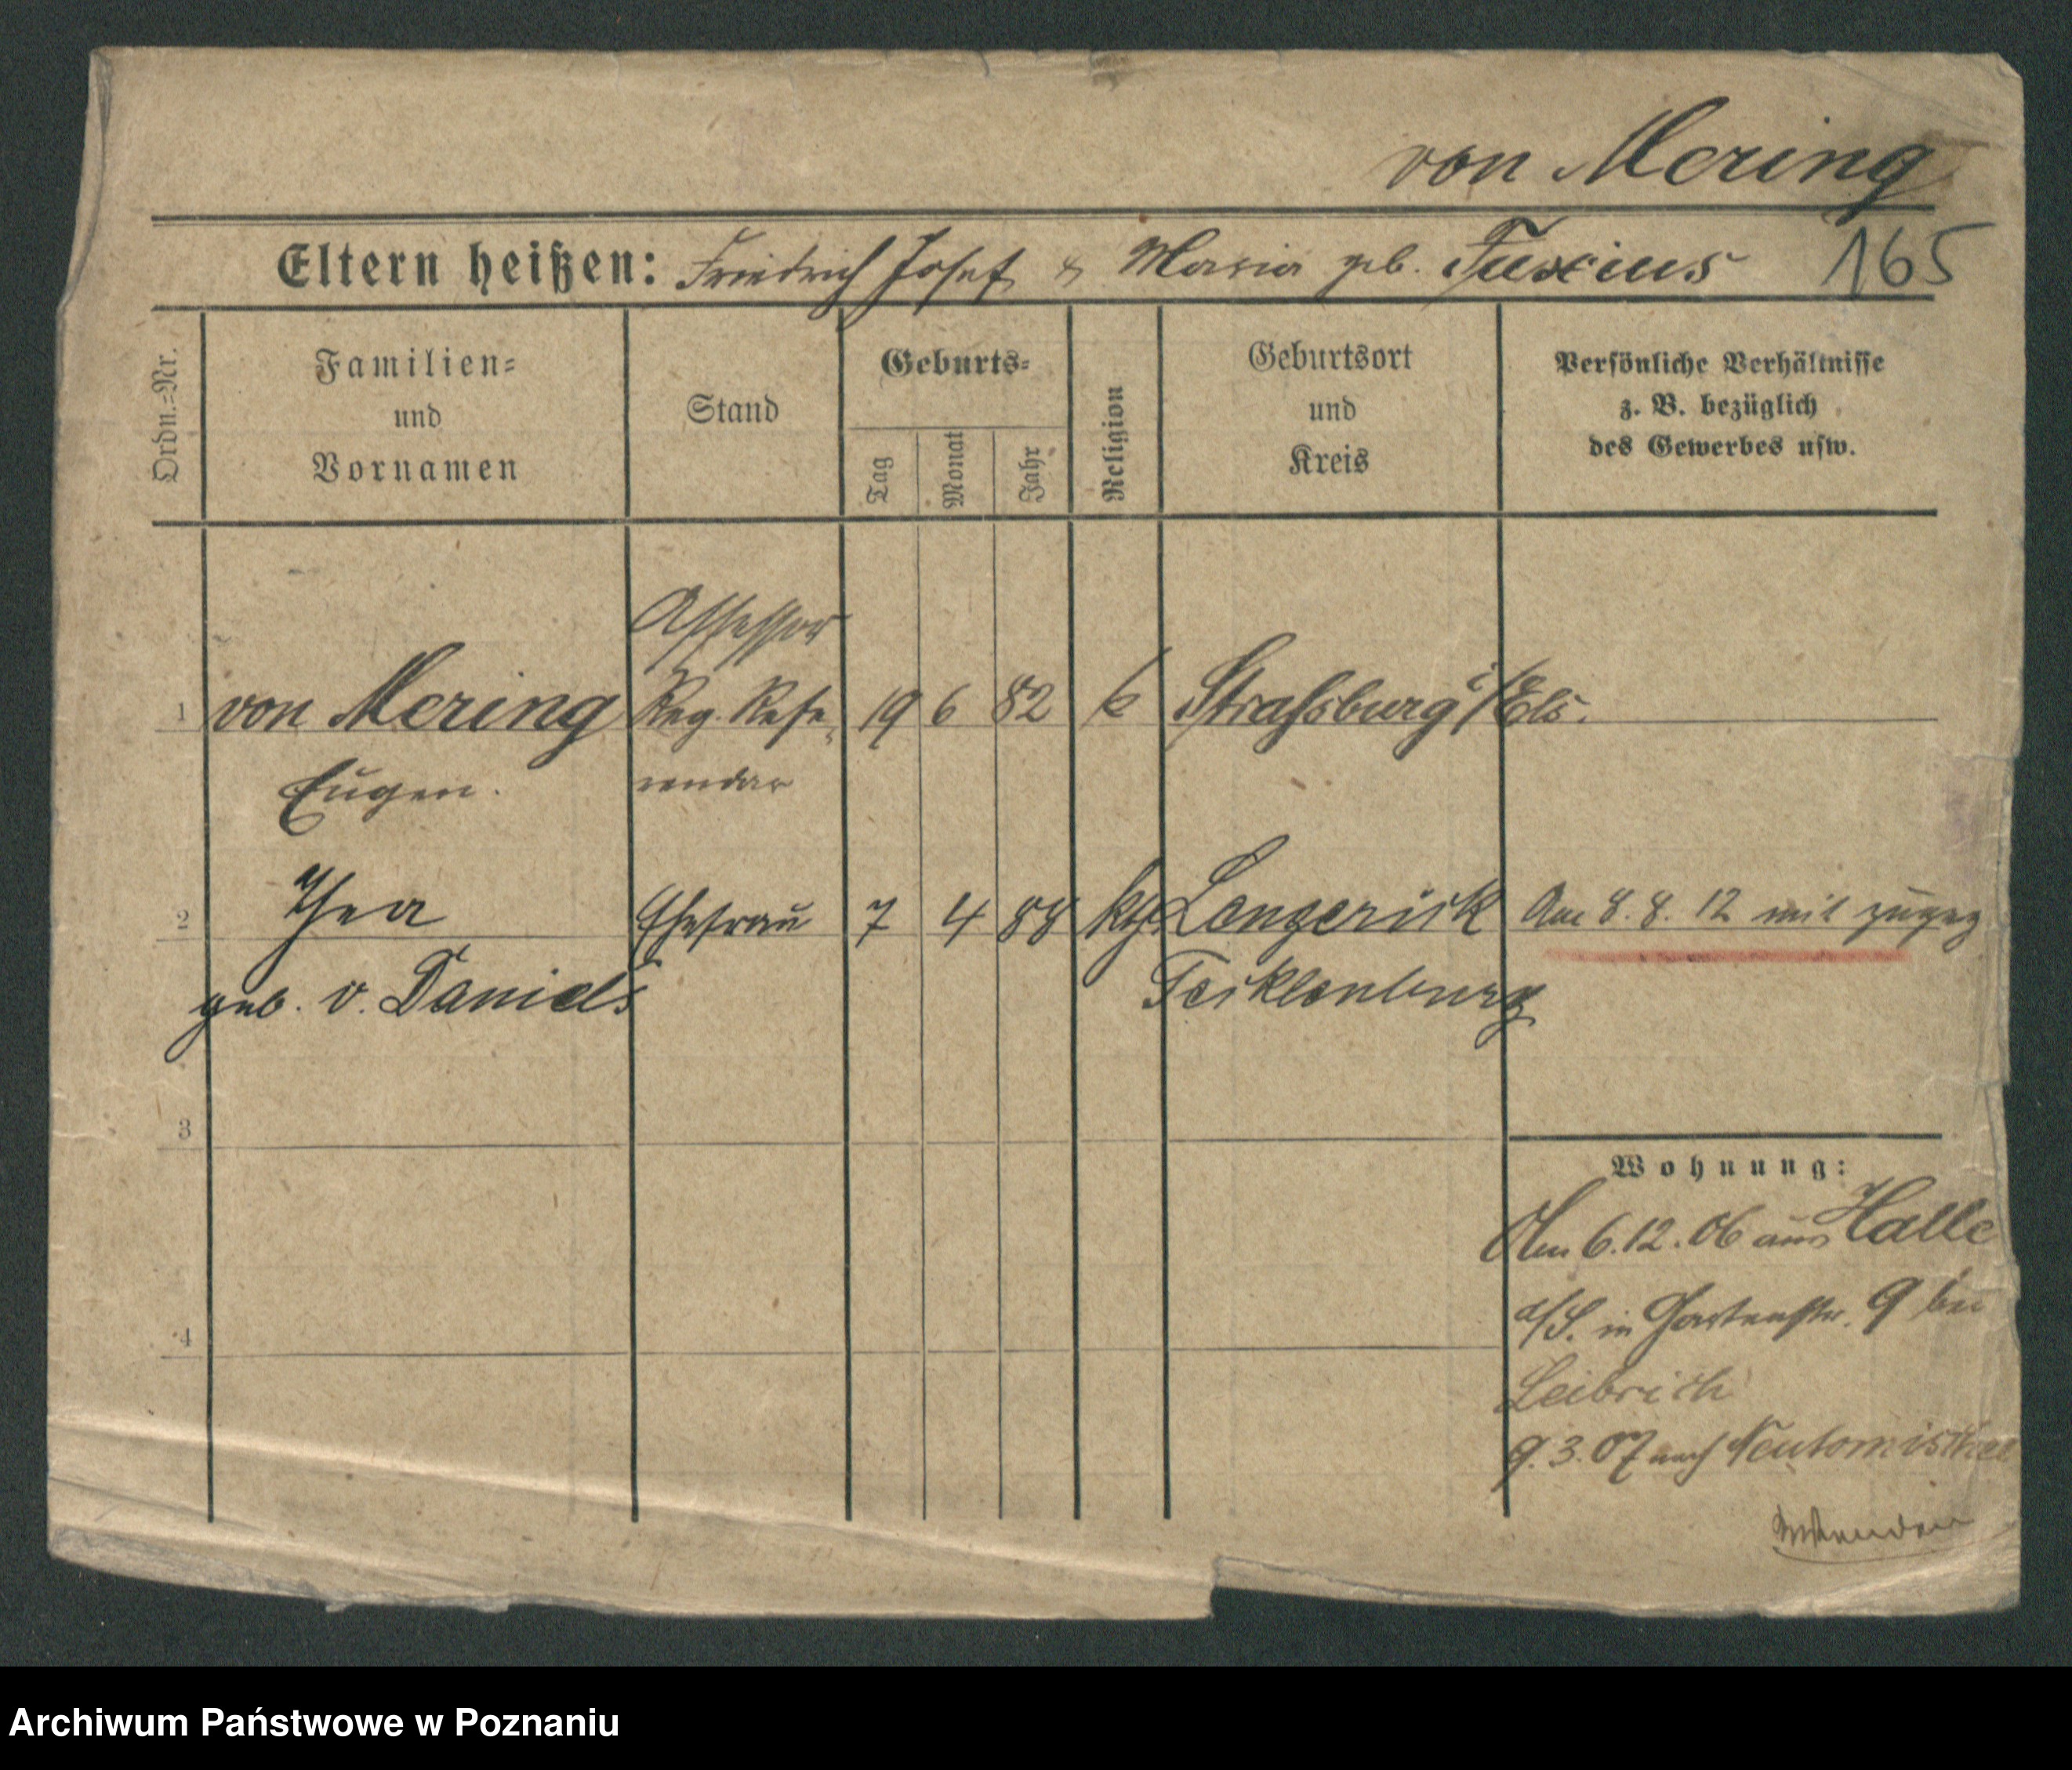 von Mering
Eltern heißen: Friedrich Josef & Maria geb. Fuxius 165
Ordn.=Nr.
Familien=
und
Vornamen
Stand
Geburts=
Tag
Monat
Jahr
Religion
Geburtsort
und
Kreis
Persönliche Verhältnisse
z. B. bezüglich
des Gewerbes usw.
Assessor
1 von Mering Reg. Refe 19 6 82 k Strassburg i/Els.
Eugen. rendar
2 Thea Ehefrau 7 4 88 kth. Lengerick Am 8. 8. 12 mit zugez
geb. v. Daniels Tecklenburg
3
Wohnung:
Am 6.12.06 aus Halle
a/S. in Gartenstr. 9 bei
4
Leibrich
9.3.07 nach Neutomischel
Archiwum Państwowe w Poznaniu